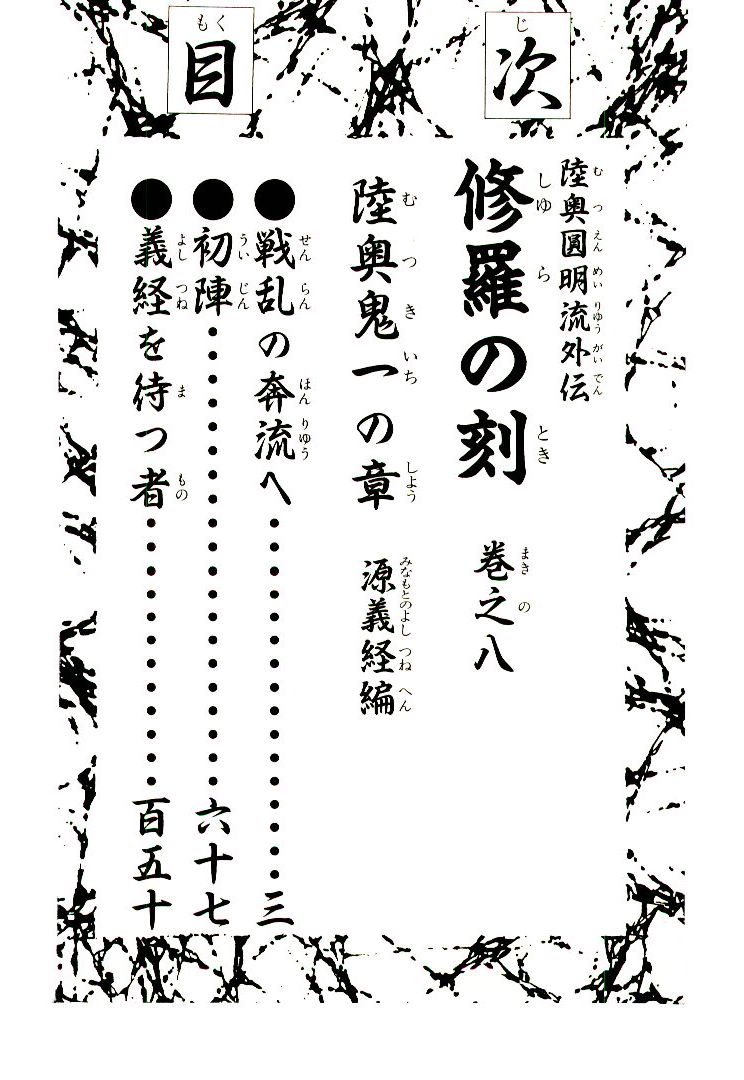 目次
陸奥圓明流外伝
修羅の刻 巻之八
陸奥鬼一の章 源義経編
●戦乱の奔流へ・・・・・・・・・・・・・・・・三
●初陣・・・・・・・・・・・・・・・・・・・・六十七
●義経を待つ者・・・・・・・・・・・・百五十